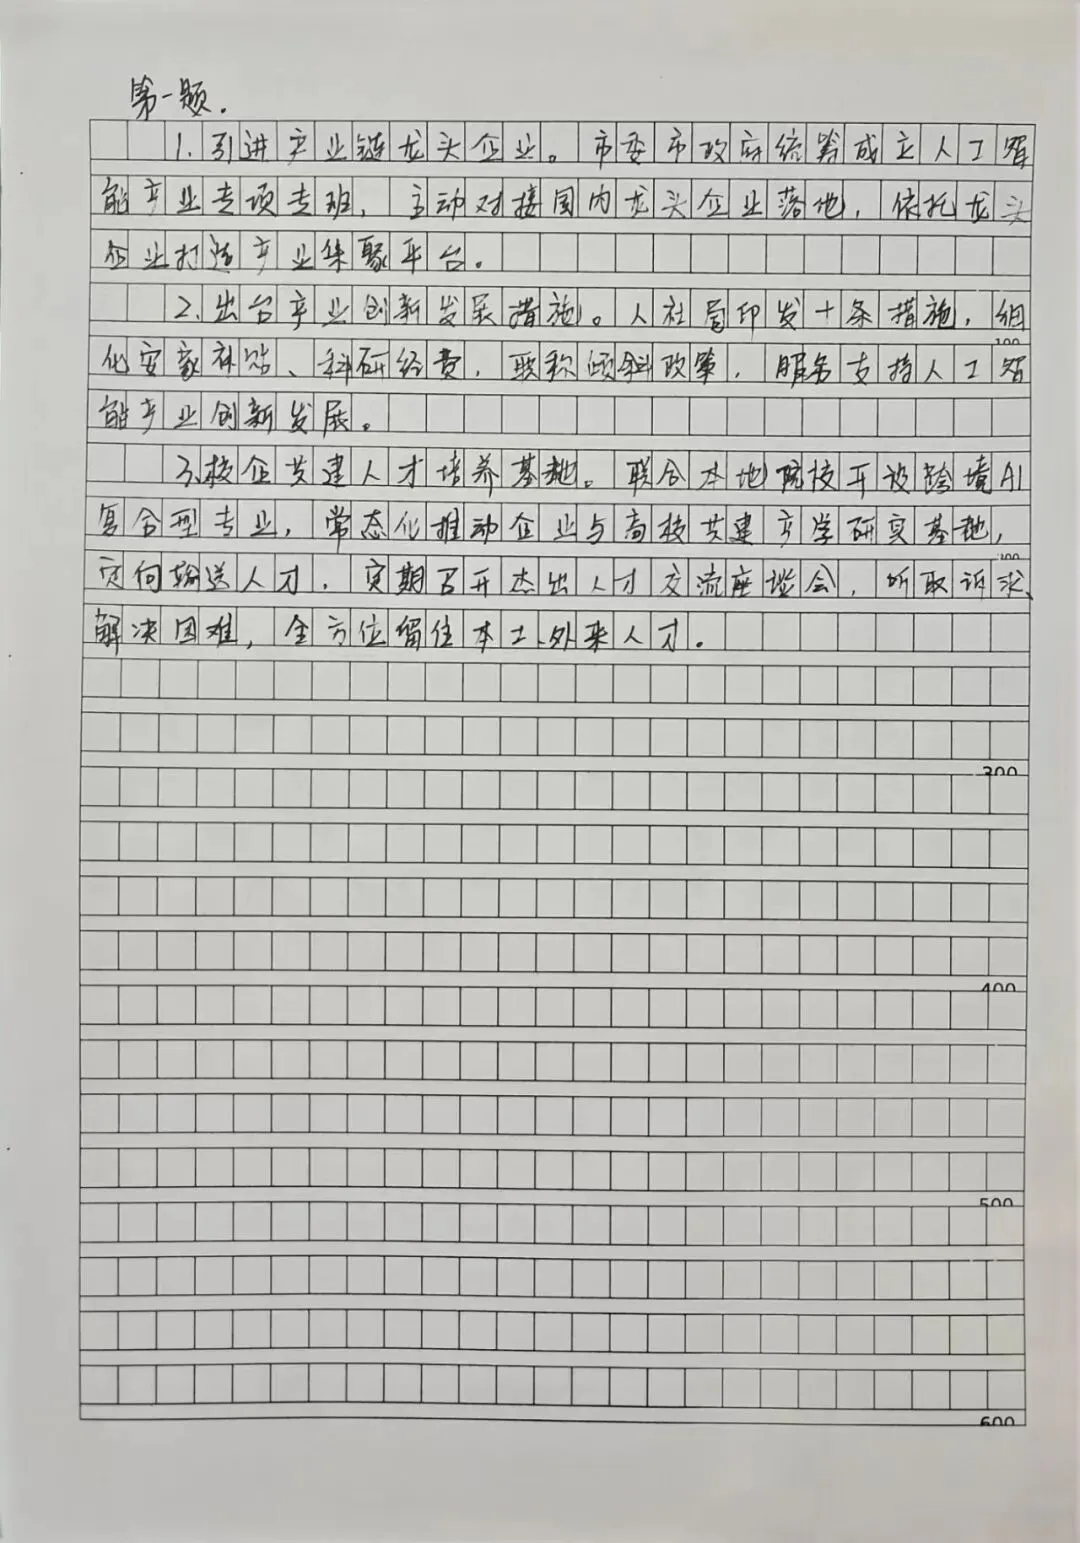 第一题.
1.引进产业链龙头企业。市委市政府统筹成立人工智
能产业专项专班，主动对接国内龙头企业落地，依托龙头
企业打造产业集聚平台。
2.出台产业创新发展措施。人社局印发十条措施，细
100
化安家补贴、科研经费，职称倾斜政策，服务支持人工智
能产业创新发展。
3.校企共建人才培养基地。联合本地院校开设跨境AI
复合型专业，常态化推动企业与高校共建产学研实基地，
200
定向输送人才，定期召开杰出人才交流座谈会，听取诉求、
解决困难，全方位留住本土、外来人才。
300
400
500
600